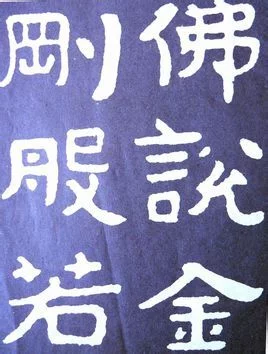 佛説金
剛般若